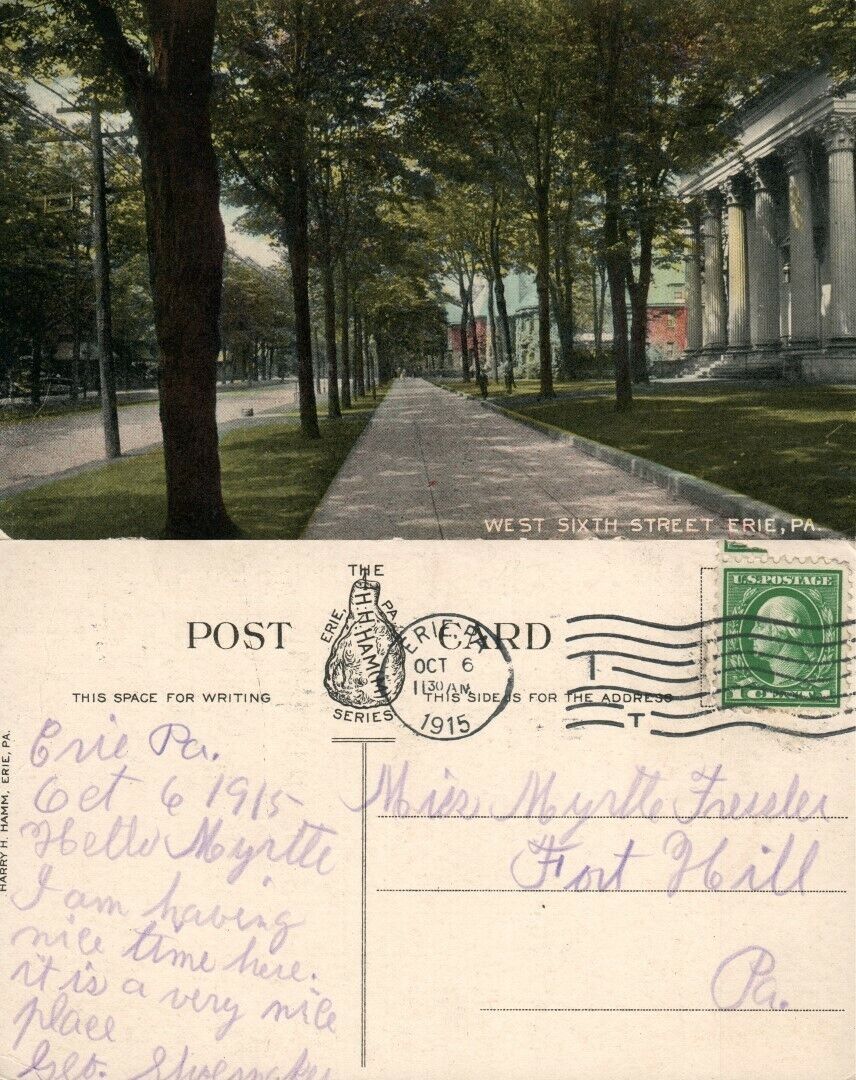 WEST SIXTH STREET ERIE, PA.
POST CARD
THE
H.H. HAMM
ERIE, PA.
SERIES
ERIE, PA.
OCT 6
1130 AM
1915
U.S. POSTAGE
THIS SPACE FOR WRITING
THIS SIDE IS FOR THE ADDRESS
HARRY H. HAMM, ERIE, PA.
Erie Pa.
Oct 6 1915
Hello Myrtle
I am having
nice time here.
it is a very nice
place
Geo. Shoemaker
Miss Myrtle Fressler
Fort Hill
Pa.